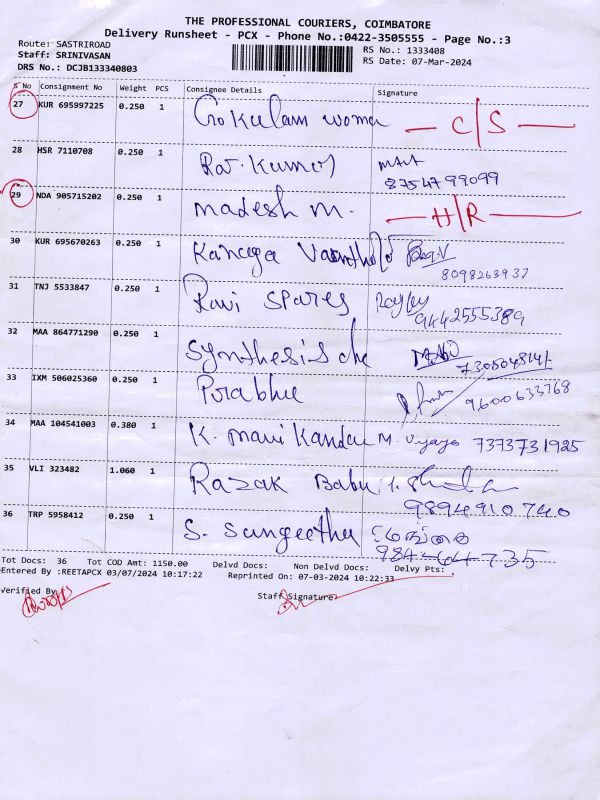 THE PROFESSIONAL COURIERS, COIMBATORE
Delivery Runsheet - PCX - Phone No.:0422-3505555 - Page No.:3
Route: SASTRIROAD
Staff: SRINIVASAN
DRS No.: DCJB133340803
RS No.: 1333408
RS Date: 07-Mar-2024
S No Consignment No Weight PCS Consignee Details Signature
27 KUR 695997225 0.250 1 Gokulam woma — C/S —
28 HSR 7110708 0.250 1 Raj. Kumar
8754799099
29 NDA 905715202 0.250 1 madesh m. — H/R —
30 KUR 695670263 0.250 1 Kanaga
8098263937
31 TNJ 5533847 0.250 1 Ravi Spares
9442555389
32 MAA 864771290 0.250 1 Synthesis che
33 IXM 506025360 0.250 1 Prabhu
9600633768
34 MAA 104541003 0.380 1 K. mani Kandan M. Vijaya 7373731925
35 VLI 323482 1.060 1 Razak Babu
9894910740
36 TRP 5958412 0.250 1 S. Sangeetha
Tot Docs: 36 Tot COD Amt: 1150.00 Delvd Docs: Non Delvd Docs: Delvy Pts:
Entered By :REETAPCX 03/07/2024 10:17:22 Reprinted On: 07-03-2024 10:22:33
Verified By
Staff Signature